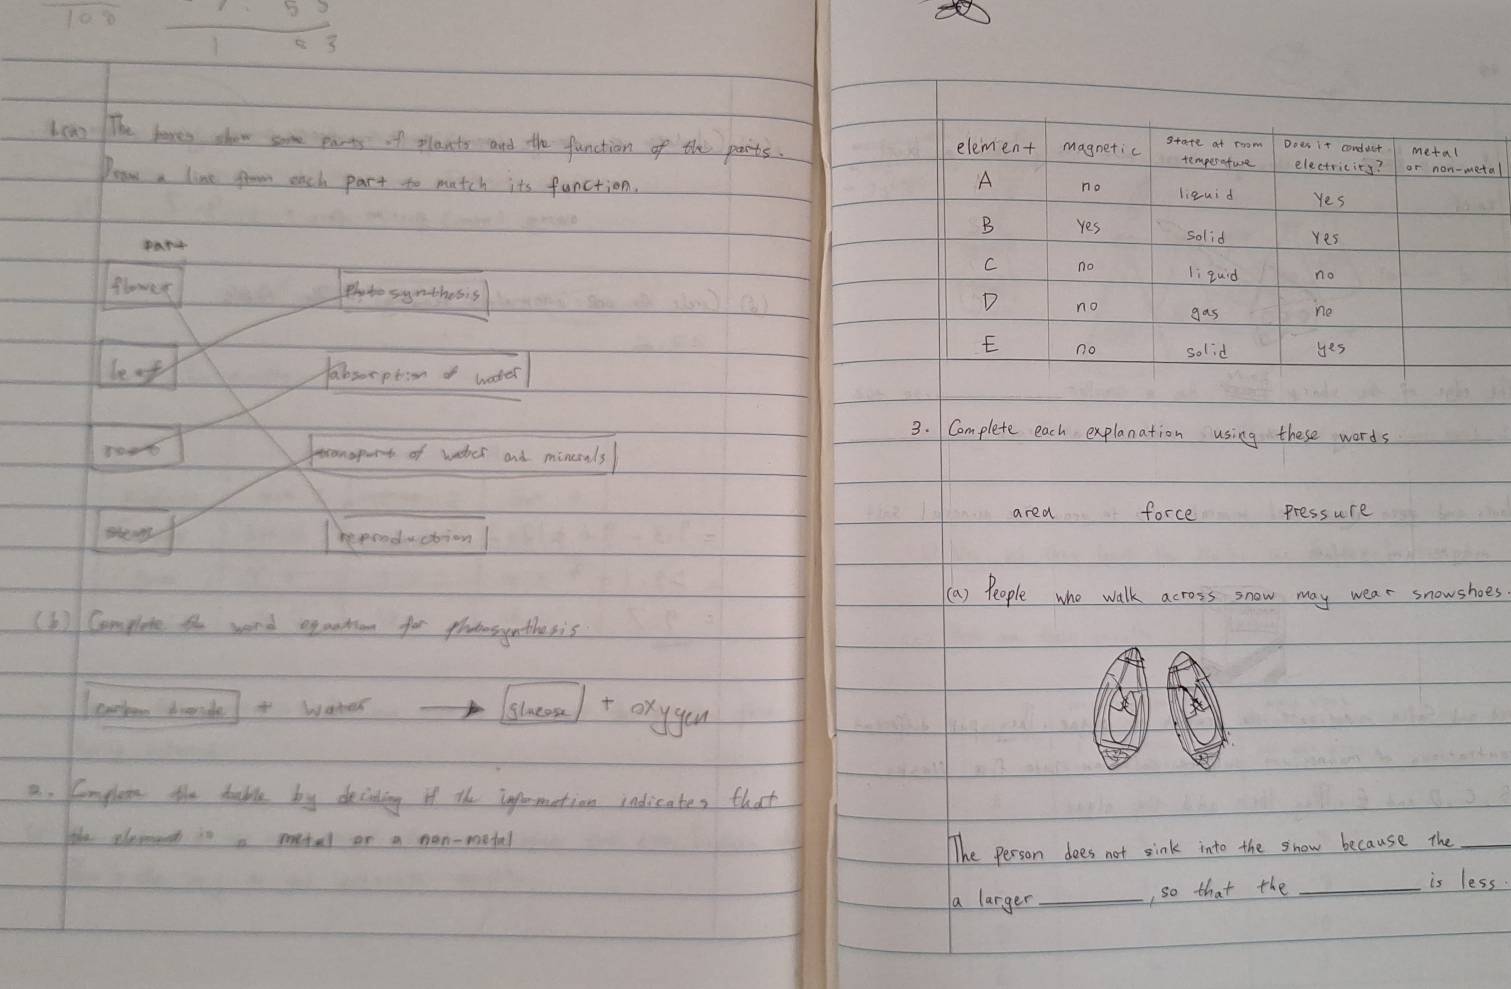 108
1. (a) The boxes show some parts of plants and the function of the parts.
Draw a line from each part to match its function.
part
flower
Photosynthesis
leaf
absorption of water
root
transport of water and minerals
stem
reproduction
(b) Complete the word equation for photosynthesis.
carbon dioxide + water → glucose + oxygen
2. Complete the table by deciding if the information indicates that
the element is a metal or a non-metal
element magnetic state at room temperature Does it conduct electricity? metal or non-metal
A no liquid yes
B yes solid yes
C no liquid no
D no gas no
E no solid yes
3. Complete each explanation using these words.
area force pressure
(a) People who walk across snow may wear snowshoes.
The person does not sink into the snow because the ____
a larger ________, so that the ________ is less.